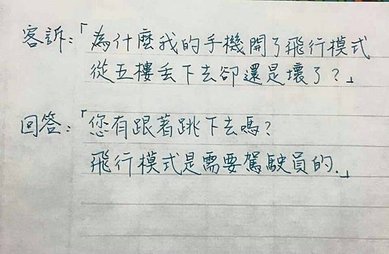 客訴：「為什麼我的手機開了飛行模式
從五樓丟下去卻還是壞了？」
回答：「您有跟著跳下去嗎？
飛行模式是需要駕駛員的.」